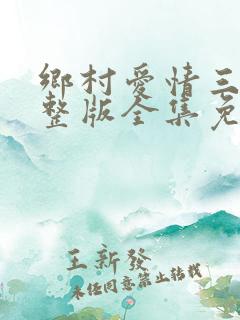 鄉村愛情三
整版全集免
王新發
未经同意禁止转载